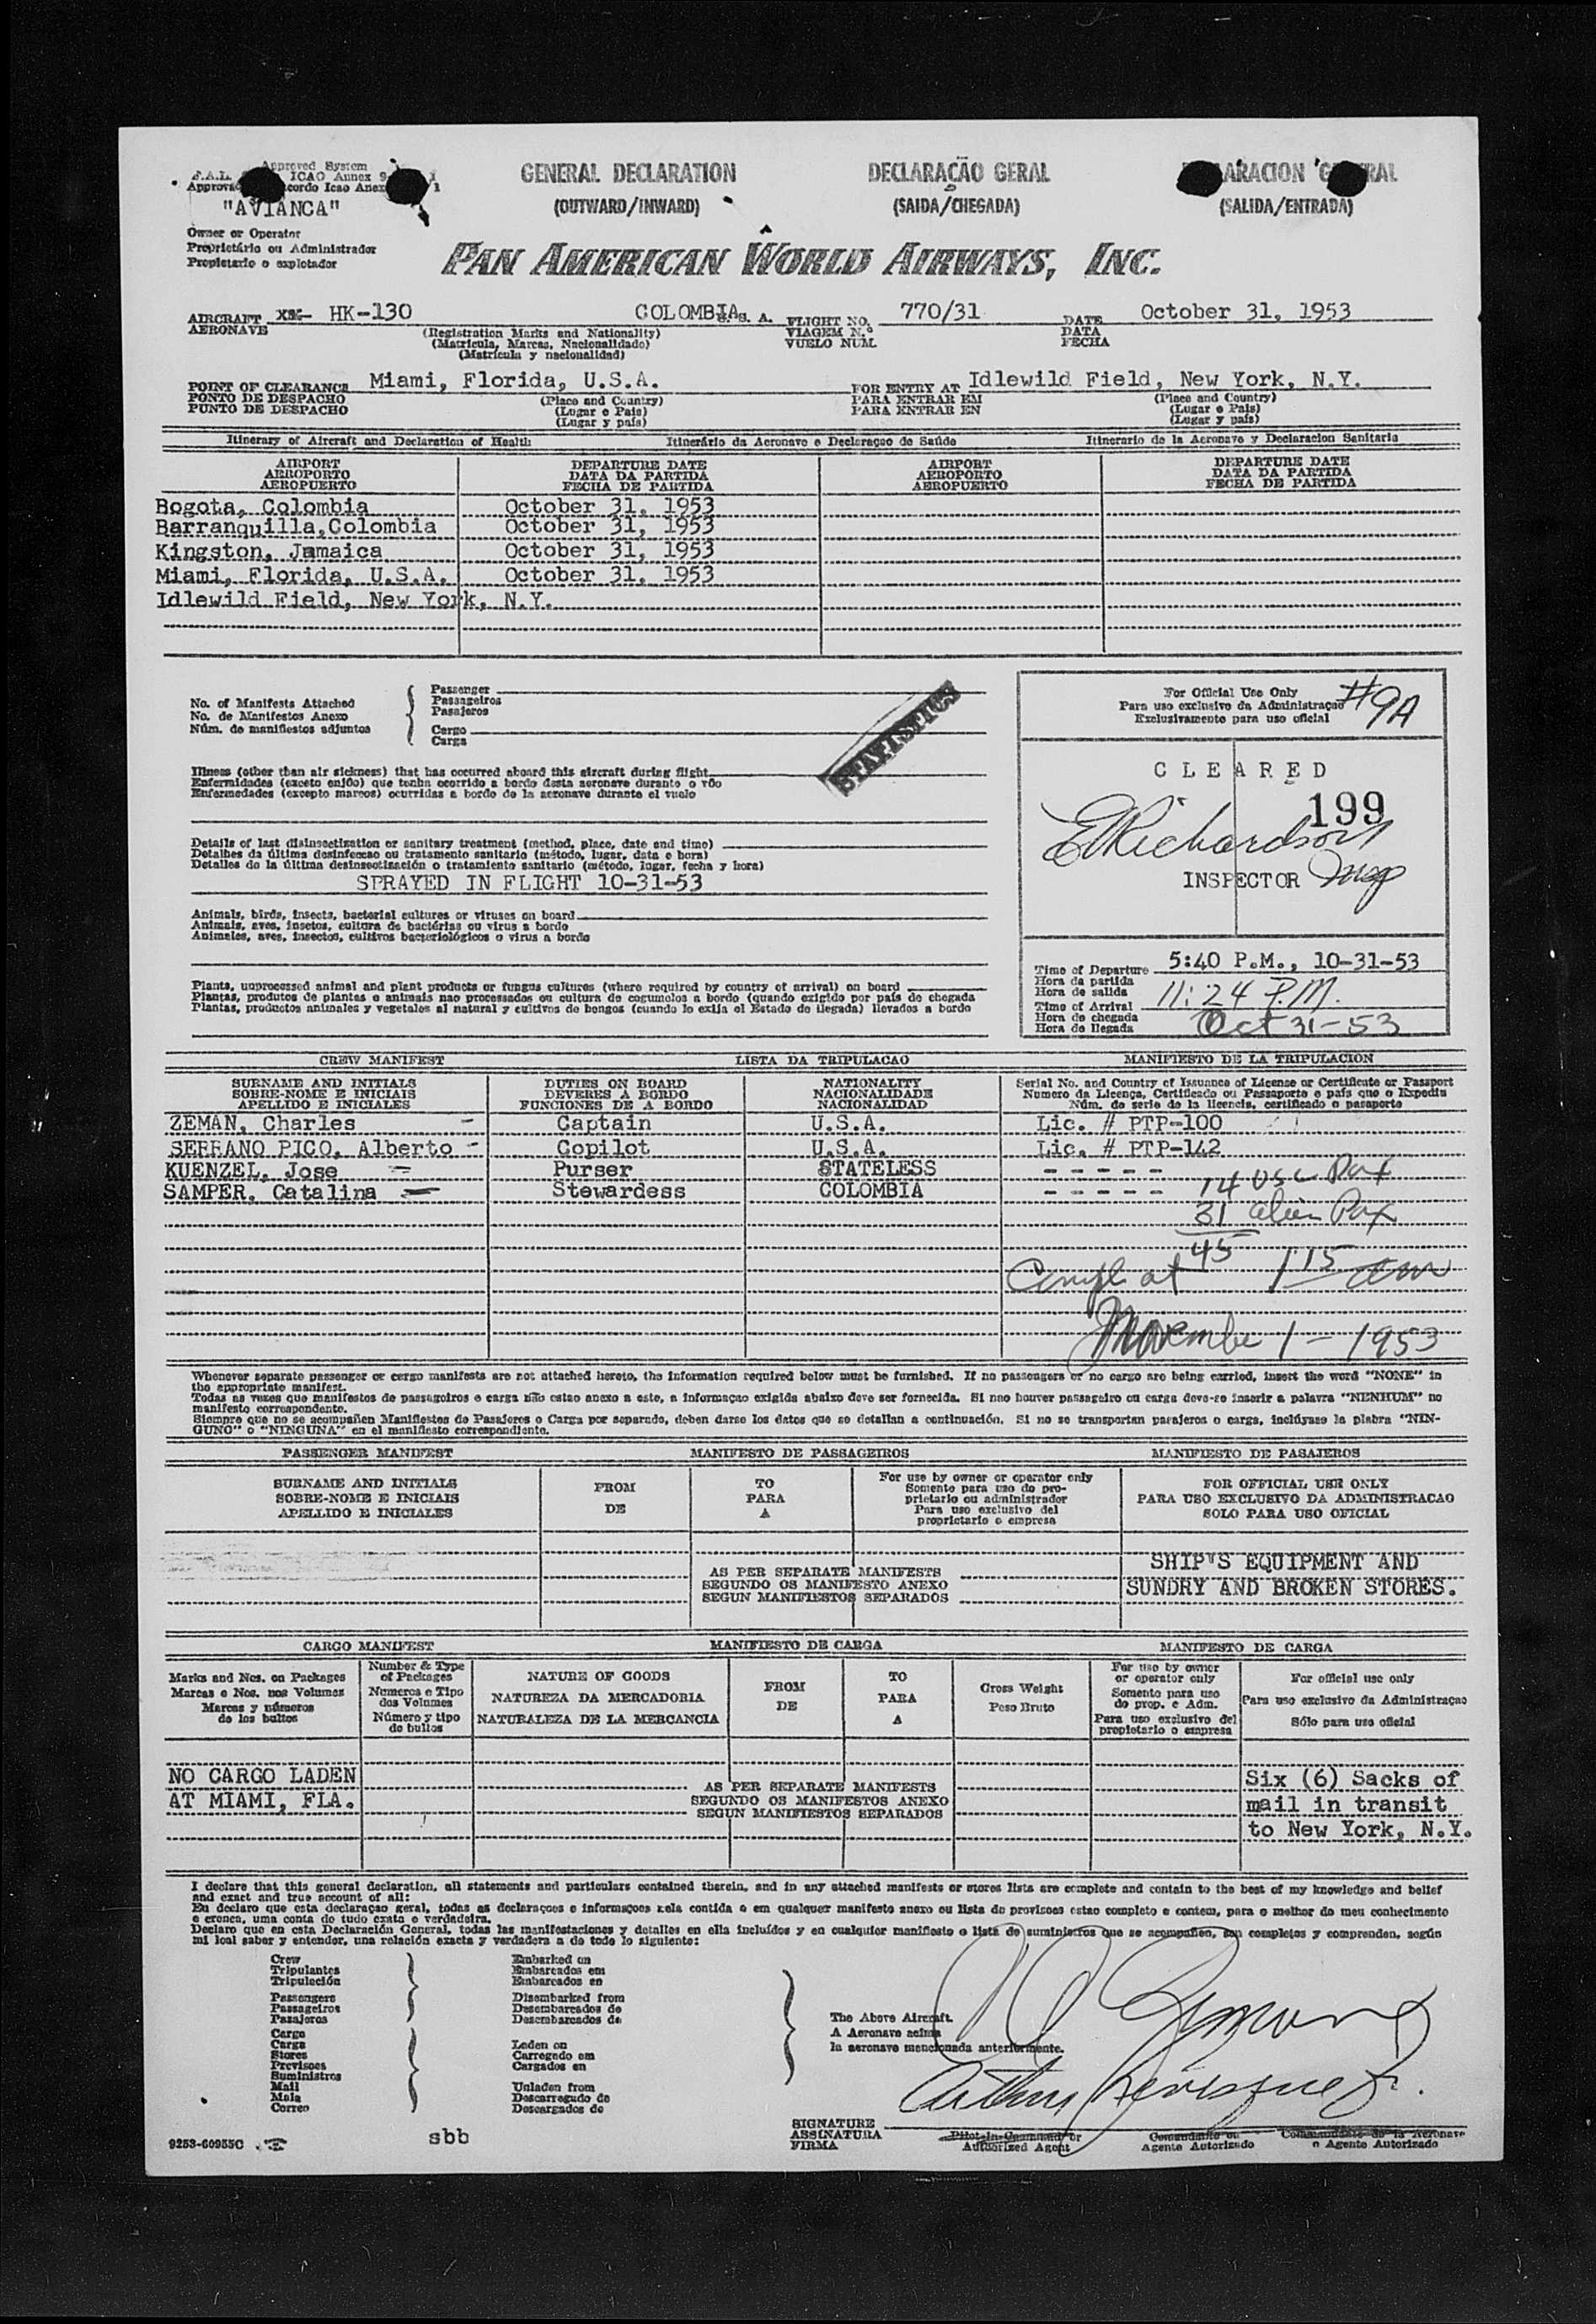 Approved System
F.A.L. ICAO Annex 9
Acordo Icao Anexo
"AVIANCA"
Owner or Operator
Proprietário ou Administrador
Propietario o explotador
GENERAL DECLARATION
(OUTWARD/INWARD)
DECLARAÇÃO GERAL
(SAIDA/CHEGADA)
(SALIDA/ENTRADA)
PAN AMERICAN WORLD AIRWAYS, INC.
AIRCRAFT HK-130 COLOMBIA S. A. FLIGHT NO. 770/31 DATE October 31, 1953
AERONAVE (Registration Marks and Nationality) VIAGEM N.º DATA
(Matricula, Marcas, Nacionalidade) VUELO NUM. FECHA
(Matricula y nacionalidad)
POINT OF CLEARANCE Miami, Florida, U.S.A. FOR ENTRY AT Idlewild Field, New York, N.Y.
PONTO DE DESPACHO (Place and Country) PARA ENTRAR EM (Place and Country)
PUNTO DE DESPACHO (Lugar e Pais) PARA ENTRAR EN (Lugar e Pais)
(Lugar y país) (Lugar y país)
Itinerary of Aircraft and Declaration of Health Itinerário da Aeronave e Declaraçao de Saúde Itinerario de la Aeronave y Declaracion Sanitaria
AIRPORT DEPARTURE DATE AIRPORT DEPARTURE DATE
AEROPORTO DATA DA PARTIDA AEROPORTO DATA DA PARTIDA
AEROPUERTO FECHA DE PARTIDA AEROPUERTO FECHA DE PARTIDA
Bogota, Colombia October 31, 1953
Barranquilla,Colombia October 31, 1953
Kingston, Jamaica October 31, 1953
Miami, Florida, U.S.A. October 31, 1953
Idlewild Field, New York, N.Y.
No. of Manifests Attached
No. de Manifestos Anexo
Núm. de manifiestos adjuntos
Passenger
Passageiros
Pasajeros
Cargo
Carga
STATISTICS
Illness (other than air sickness) that has occurred aboard this aircraft during flight
Enfermidades (exceto enjôo) que tenha ocorrido a bordo desta aeronave durante o vôo
Enfermedades (excepto mareos) ocurridas a bordo de la aeronave durante el vuelo
Details of last disinsectization or sanitary treatment (method, place, date and time)
Detalhes da última desinfeccao ou tratamento sanitario (método, lugar, data e hora)
Detalles de la última desinsectización o tratamiento sanitario (método, lugar, fecha y hora)
SPRAYED IN FLIGHT 10-31-53
Animals, birds, insects, bacterial cultures or viruses on board
Animais, aves, insetos, cultura de bactérias ou virus a bordo
Animales, aves, insectos, cultivos bacteriológicos o virus a bordo
Plants, unprocessed animal and plant products or fungus cultures (where required by country of arrival) on board
Plantas, produtos de plantas e animais nao processadas ou cultura de cogumelos a bordo (quando exigido por país de chegada
Plantas, productos animales y vegetales al natural y cultivos de hongos (cuando lo exija el Estado de llegada) llevados a bordo
For Official Use Only
Para uso exclusivo da Administraçao
Exclusivamente para uso oficial
#9A
CLEARED
199
E Richardson
INSPECTOR
Time of Departure 5:40 P.M., 10-31-53
Hora da partida
Hora de salida 11:24 P.M.
Time of Arrival
Hora do chegada Oct 31-53
Hora de llegada
CREW MANIFEST LISTA DA TRIPULACAO MANIFIESTO DE LA TRIPULACION
SURNAME AND INITIALS DUTIES ON BOARD NATIONALITY Serial No. and Country of Issuance of License or Certificate or Passport
SOBRE-NOME E INICIAIS DEVERES A BORDO NACIONALIDADE Numero da Licença, Certificado ou Passaporte e pais que o Expediu
APELLIDO E INICIALES FUNCIONES DE A BORDO NACIONALIDAD Núm. de serie de la licencia, certificado o pasaporte
ZEMAN, Charles - Captain U.S.A. Lic. # PTP-100
SERRANO PICO, Alberto - Copilot U.S.A. Lic. # PTP-142
KUENZEL, Jose Purser STATELESS - - - - -
SAMPER, Catalina Stewardess COLOMBIA - - - - -
14 USC Pax
31 alien Pax
45
Compl at 1:15 am
November 1 - 1953
Whenever separate passenger or cargo manifests are not attached hereto, the information required below must be furnished. If no passengers or no cargo are being carried, insert the word "NONE" in
the appropriate manifest.
Todas as vezes que manifestos de passageiros e carga não estao anexo a este, a informaçao exigida abaixo deve ser fornecida. Si nao houver passageiro ou carga deve-se inserir a palavra "NENHUM" no
manifesto correspondente.
Siempre que no se acompañen Manifiestos de Pasajeros o Carga por separado, deben darse los datos que se detallan a continuación. Si no se transportan pasajeros o carga, inclúyase la plabra "NIN-
GUNO" o "NINGUNA" en el manifiesto correspondiente.
PASSENGER MANIFEST MANIFESTO DE PASSAGEIROS MANIFIESTO DE PASAJEROS
SURNAME AND INITIALS
SOBRE-NOME E INICIAIS
APELLIDO E INICIALES
FROM
DE
TO
PARA
A
For use by owner or operator only
Somento para uso do pro-
prietario ou administrador
Para uso exclusivo del
proprietario o empresa
FOR OFFICIAL USE ONLY
PARA USO EXCLUSIVO DA ADMINISTRACAO
SOLO PARA USO OFICIAL
AS PER SEPARATE MANIFESTS
SEGUNDO OS MANIFESTO ANEXO
SEGUN MANIFIESTOS SEPARADOS
SHIP'S EQUIPMENT AND
SUNDRY AND BROKEN STORES.
CARGO MANIFEST MANIFIESTO DE CARGA MANIFESTO DE CARGA
Marks and Nos. on Packages
Marcas e Nos. nos Volumes
Marcas y números
de los bultos
Number & Type
of Packages
Numeros e Tipo
dos Volumes
Número y tipo
de bultos
NATURE OF GOODS
NATUREZA DA MERCADORIA
NATURALEZA DE LA MERCANCIA
FROM
DE
TO
PARA
A
Gross Weight
Peso Bruto
For use by owner
or operator only
Somento para uso
do prop. e Adm.
Para uso exclusivo del
propietario o empresa
For official use only
Para uso exclusivo da Administraçao
Sólo para uso oficial
NO CARGO LADEN
AT MIAMI, FLA.
AS PER SEPARATE MANIFESTS
SEGUNDO OS MANIFESTOS ANEXO
SEGUN MANIFIESTOS SEPARADOS
Six (6) Sacks of
mail in transit
to New York, N.Y.
I declare that this general declaration, all statements and particulars contained therein, and in any attached manifests or stores lists are complete and contain to the best of my knowledge and belief
and exact and true account of all:
Eu declaro que esta declaraçao geral, todas as declaraçoes e informaçoes nela contida e em qualquer manifesto anexo ou lista de provisoes estao completo e contem, para o melhor do meu conhecimento
e crenca, uma conta de tudo exata e verdadeira.
Declaro que en esta Declaración General, todas las manifestaciones y detalles en ella incluídos y en cualquier manifiesto o lista de suministros que se acompañen, son completos y comprenden, según
mi leal saber y entender, una relación exacta y verdadera a de todo lo siguiente:
Crew
Tripulantes
Tripulación
Passengers
Passageiros
Pasajeros
Cargo
Carga
Stores
Previsoes
Suministros
Mail
Mala
Correo
Embarked on
Embarcados em
Embarcados en
Disembarked from
Desembarcados de
Desembarcados de
Laden on
Carregado em
Cargados en
Unladen from
Descarregado de
Descargados de
The Above Aircraft.
A Aeronave acima
la aeronave mencionada anteriormente.
SIGNATURE
ASSINATURA
FIRMA
Pilot-in-Command or
Authorized Agent
Comandante ou
Agente Autorizado
Commandante de la Aeronave
o Agente Autorizado
9253-60955C
sbb